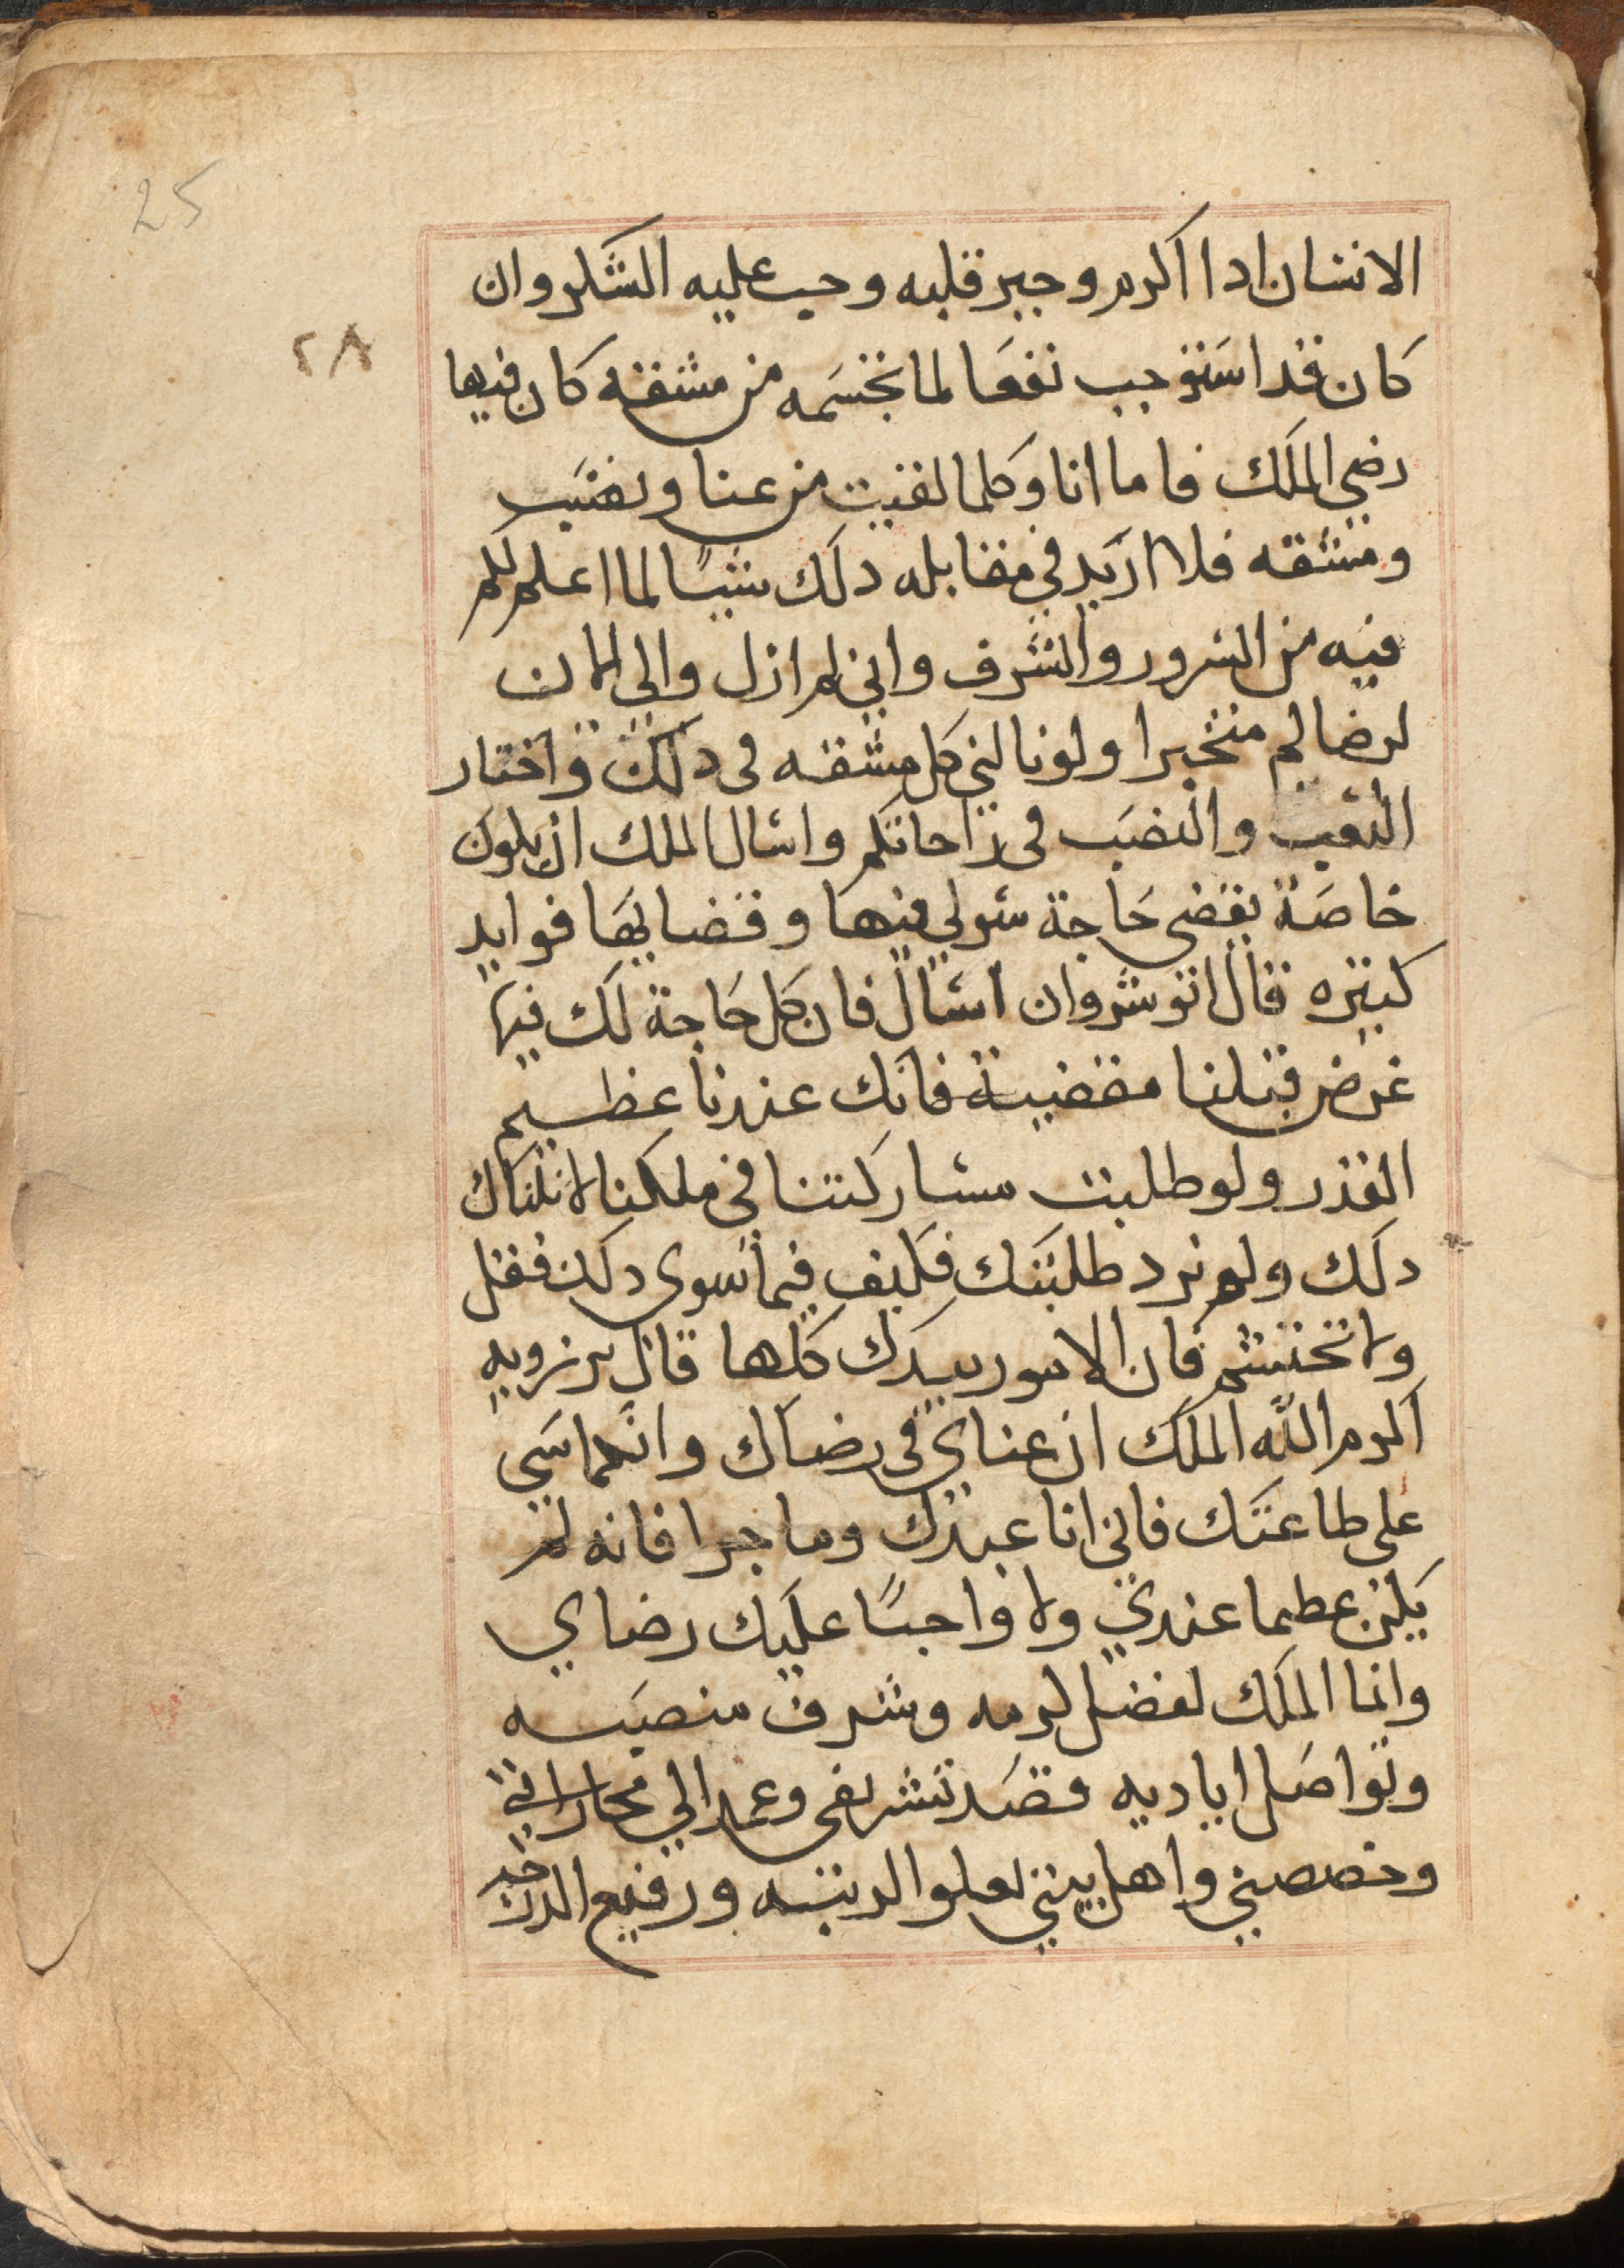 25
الانسان ادا اكرم وجبر قلبه وجب عليه الشكر وان
٢٨
كان قد استوجب نفعا لما تجشمه من مشقه كان فيها
رضي الملك فاما انا وكلما لقيت من عنا وتعب
ومشقه فلا اريد في مقابله دلك شيا لما اعلم لكم
فيه من السرور والشرف واني لم ازل والي الان
لرضاكم متخيرا ولو نالني كل مشقه فى دلك واختار
التعب والنصب فى راحاتكم واسال الملك ان يكون
خاصة بقضى حاجة سولي فيها وقضايها فوايد
كبيره قال انوشروان اسال فان كل حاجة لك فيها
غرض قبلنا مقضية فانك عندنا عظيم
القدر ولو طلبت مشاركتنا في ملكنا لانلناك
دلك ولم نرد طلبتك فكيف فيما سوى دلك فقل
ولا تحتشم فان الامور بيدك كلها قال برزويه
اكرم الله الملك ان عناي فى رضاك وانكماسي
على طاعتك فاني انا عبدك وما جرا فانه لم
يكن عظيما عندي ولا واجبا عليك رضاي
وانما الملك لفضل كرمه وشرف منصبه
وتواصل اياديه قصد تشريفى وعمد الي مجازاتي
وخصصني واهل بيتي لعلو الرتبه ورفيع الدرجه